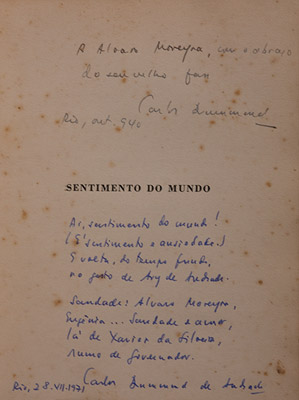 A Alvaro Moreyra, com o abraço
do seu velho fan
Carlos Drummond
Rio, out. 940
SENTIMENTO DO MUNDO
Ai, sentimento do mundo!
(É sentimento e ansiedade.)
E volta, do tempo fundo,
no gesto de Ary de Andrade.
Saudade: Alvaro Moreyra,
Eugênia... Saudade e amor,
lá de Xavier da Silveira,
rumo de Governador.
Carlos Drummond de Andrade
Rio, 28.VII.1971